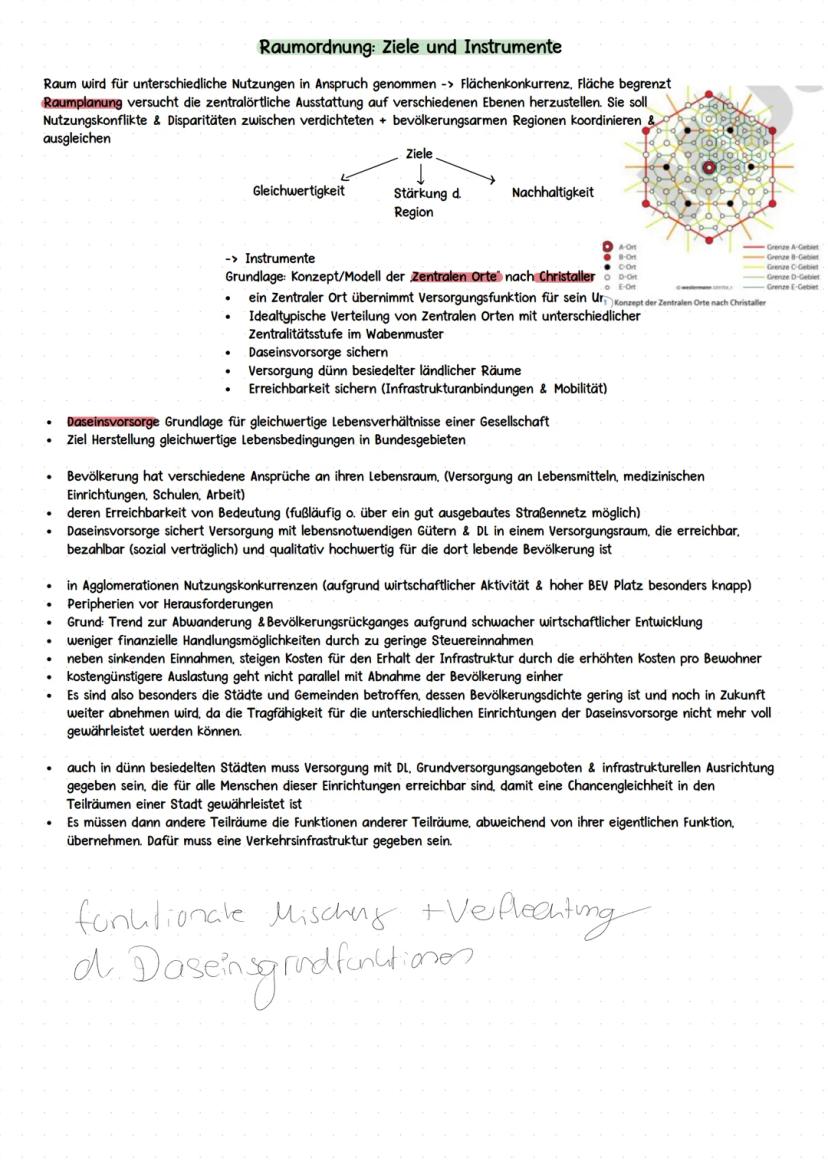 Raumordnung: Ziele und Instrumente
Raum wird für unterschiedliche Nutzungen in Anspruch genommen -> Flächenkonkurrenz, Fläche begrenzt
Raumplanung versucht die zentralörtliche Ausstattung auf verschiedenen Ebenen herzustellen. Sie soll
Nutzungskonflikte & Disparitäten zwischen verdichteten + bevölkerungsarmen Regionen koordinieren &
ausgleichen
Ziele
Gleichwertigkeit
Stärkung d.
Region
Nachhaltigkeit
A-Ort
B-Ort
C-Ort
D-Ort
E-Ort
Grenze A-Gebiet
Grenze B-Gebiet
Grenze C-Gebiet
Grenze D-Gebiet
Grenze E-Gebiet
© westermann
1 Konzept der Zentralen Orte nach Christaller
-> Instrumente
Grundlage: Konzept/Modell der „Zentralen Orte" nach Christaller
• ein Zentraler Ort übernimmt Versorgungsfunktion für sein Um
• Idealtypische Verteilung von Zentralen Orten mit unterschiedlicher
Zentralitätsstufe im Wabenmuster
• Daseinsvorsorge sichern
• Versorgung dünn besiedelter ländlicher Räume
• Erreichbarkeit sichern (Infrastrukturanbindungen & Mobilität)
• Daseinsvorsorge Grundlage für gleichwertige Lebensverhältnisse einer Gesellschaft
• Ziel Herstellung gleichwertige Lebensbedingungen in Bundesgebieten
• Bevölkerung hat verschiedene Ansprüche an ihren Lebensraum, (Versorgung an Lebensmitteln, medizinischen
Einrichtungen, Schulen, Arbeit)
• deren Erreichbarkeit von Bedeutung (fußläufig o. über ein gut ausgebautes Straßennetz möglich)
• Daseinsvorsorge sichert Versorgung mit lebensnotwendigen Gütern & DL in einem Versorgungsraum, die erreichbar,
bezahlbar (sozial verträglich) und qualitativ hochwertig für die dort lebende Bevölkerung ist
• in Agglomerationen Nutzungskonkurrenzen (aufgrund wirtschaftlicher Aktivität & hoher BEV Platz besonders knapp)
• Peripherien vor Herausforderungen
• Grund: Trend zur Abwanderung & Bevölkerungsrückganges aufgrund schwacher wirtschaftlicher Entwicklung
• weniger finanzielle Handlungsmöglichkeiten durch zu geringe Steuereinnahmen
• neben sinkenden Einnahmen, steigen Kosten für den Erhalt der Infrastruktur durch die erhöhten Kosten pro Bewohner
• kostengünstigere Auslastung geht nicht parallel mit Abnahme der Bevölkerung einher
• Es sind also besonders die Städte und Gemeinden betroffen, dessen Bevölkerungsdichte gering ist und noch in Zukunft
weiter abnehmen wird, da die Tragfähigkeit für die unterschiedlichen Einrichtungen der Daseinsvorsorge nicht mehr voll
gewährleistet werden können.
• auch in dünn besiedelten Städten muss Versorgung mit DL, Grundversorgungsangeboten & infrastrukturellen Ausrichtung
gegeben sein, die für alle Menschen dieser Einrichtungen erreichbar sind, damit eine Chancengleichheit in den
Teilräumen einer Stadt gewährleistet ist
• Es müssen dann andere Teilräume die Funktionen anderer Teilräume, abweichend von ihrer eigentlichen Funktion,
übernehmen. Dafür muss eine Verkehrsinfrastruktur gegeben sein.
funktionale Mischung + Verflechtung
d. Daseinsgrundfunktionen